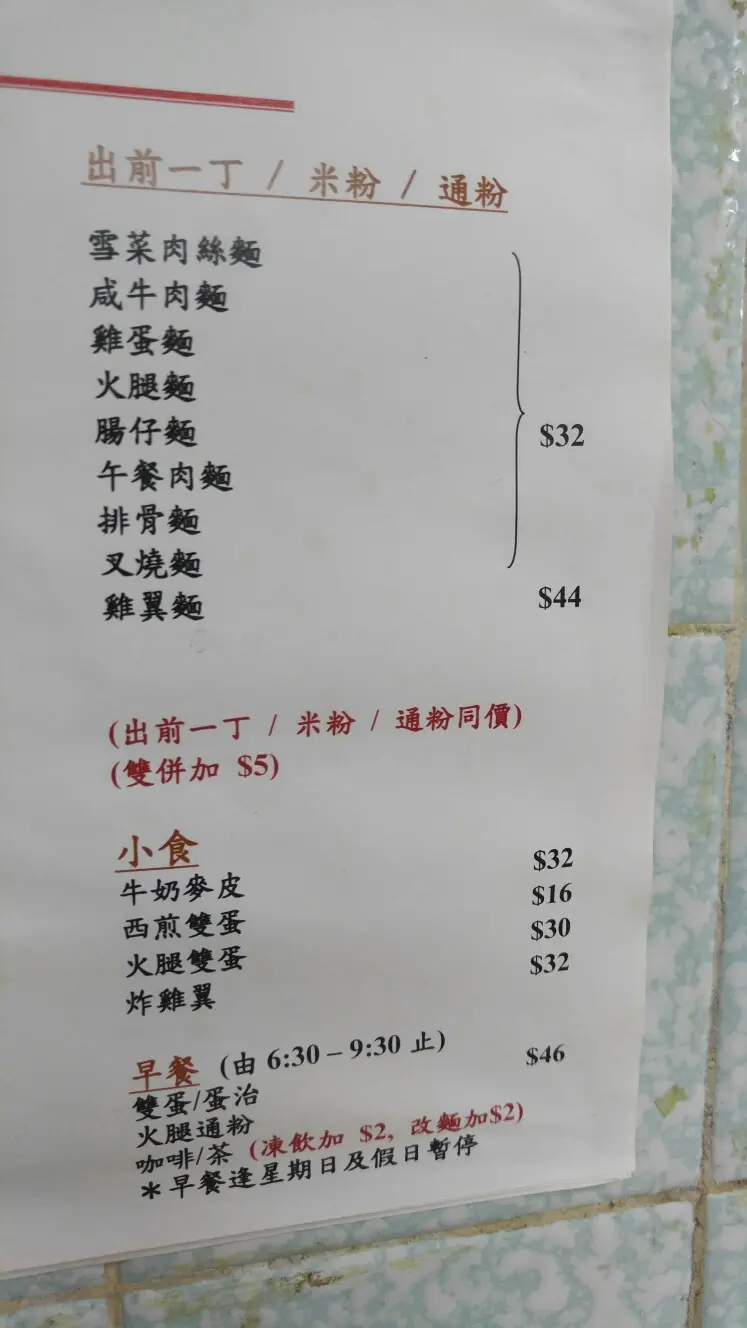 出前一丁 / 米粉 / 通粉
雪菜肉絲麵
咸牛肉麵
雞蛋麵
火腿麵
腸仔麵 $32
午餐肉麵
排骨麵
叉燒麵
雞翼麵 $44
(出前一丁 / 米粉 / 通粉同價)
(雙併加 $5)
小食
牛奶麥皮 $32
西煎雙蛋 $16
火腿雙蛋 $30
炸雞翼 $32
早餐 (由 6:30 – 9:30 止) $46
雙蛋/蛋治
火腿通粉
咖啡/茶 (凍飲加 $2, 改麵加$2)
＊早餐逢星期日及假日暫停